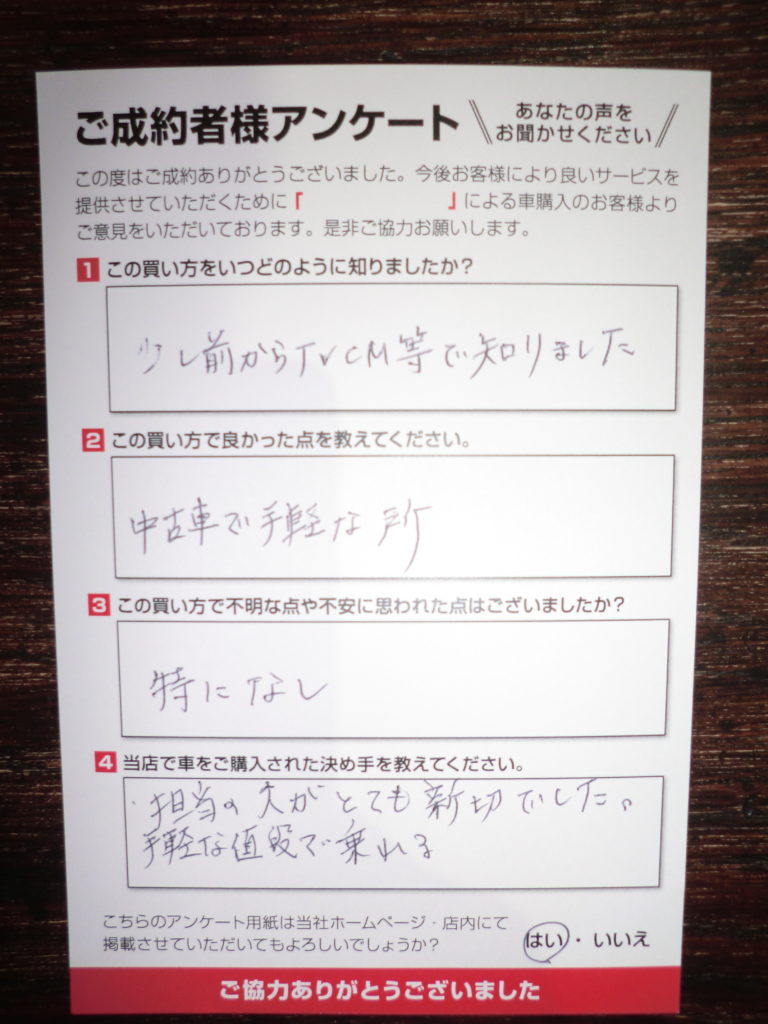 ご成約者様アンケート
あなたの声を
お聞かせください
この度はご成約ありがとうございました。今後お客様により良いサービスを
提供させていただくために「 」による車購入のお客様より
ご意見をいただいております。是非ご協力お願いします。
1 この買い方をいつどのように知りましたか?
少し前からTVCM等で知りました
2 この買い方で良かった点を教えてください。
中古車で手軽な所
3 この買い方で不明な点や不安に思われた点はございましたか?
特になし
4 当店で車をご購入された決め手を教えてください。
・担当の人がとても新切でした。
手軽な値段で乗れる
こちらのアンケート用紙は当社ホームページ・店内にて
掲載させていただいてもよろしいでしょうか? はい・いいえ
ご協力ありがとうございました